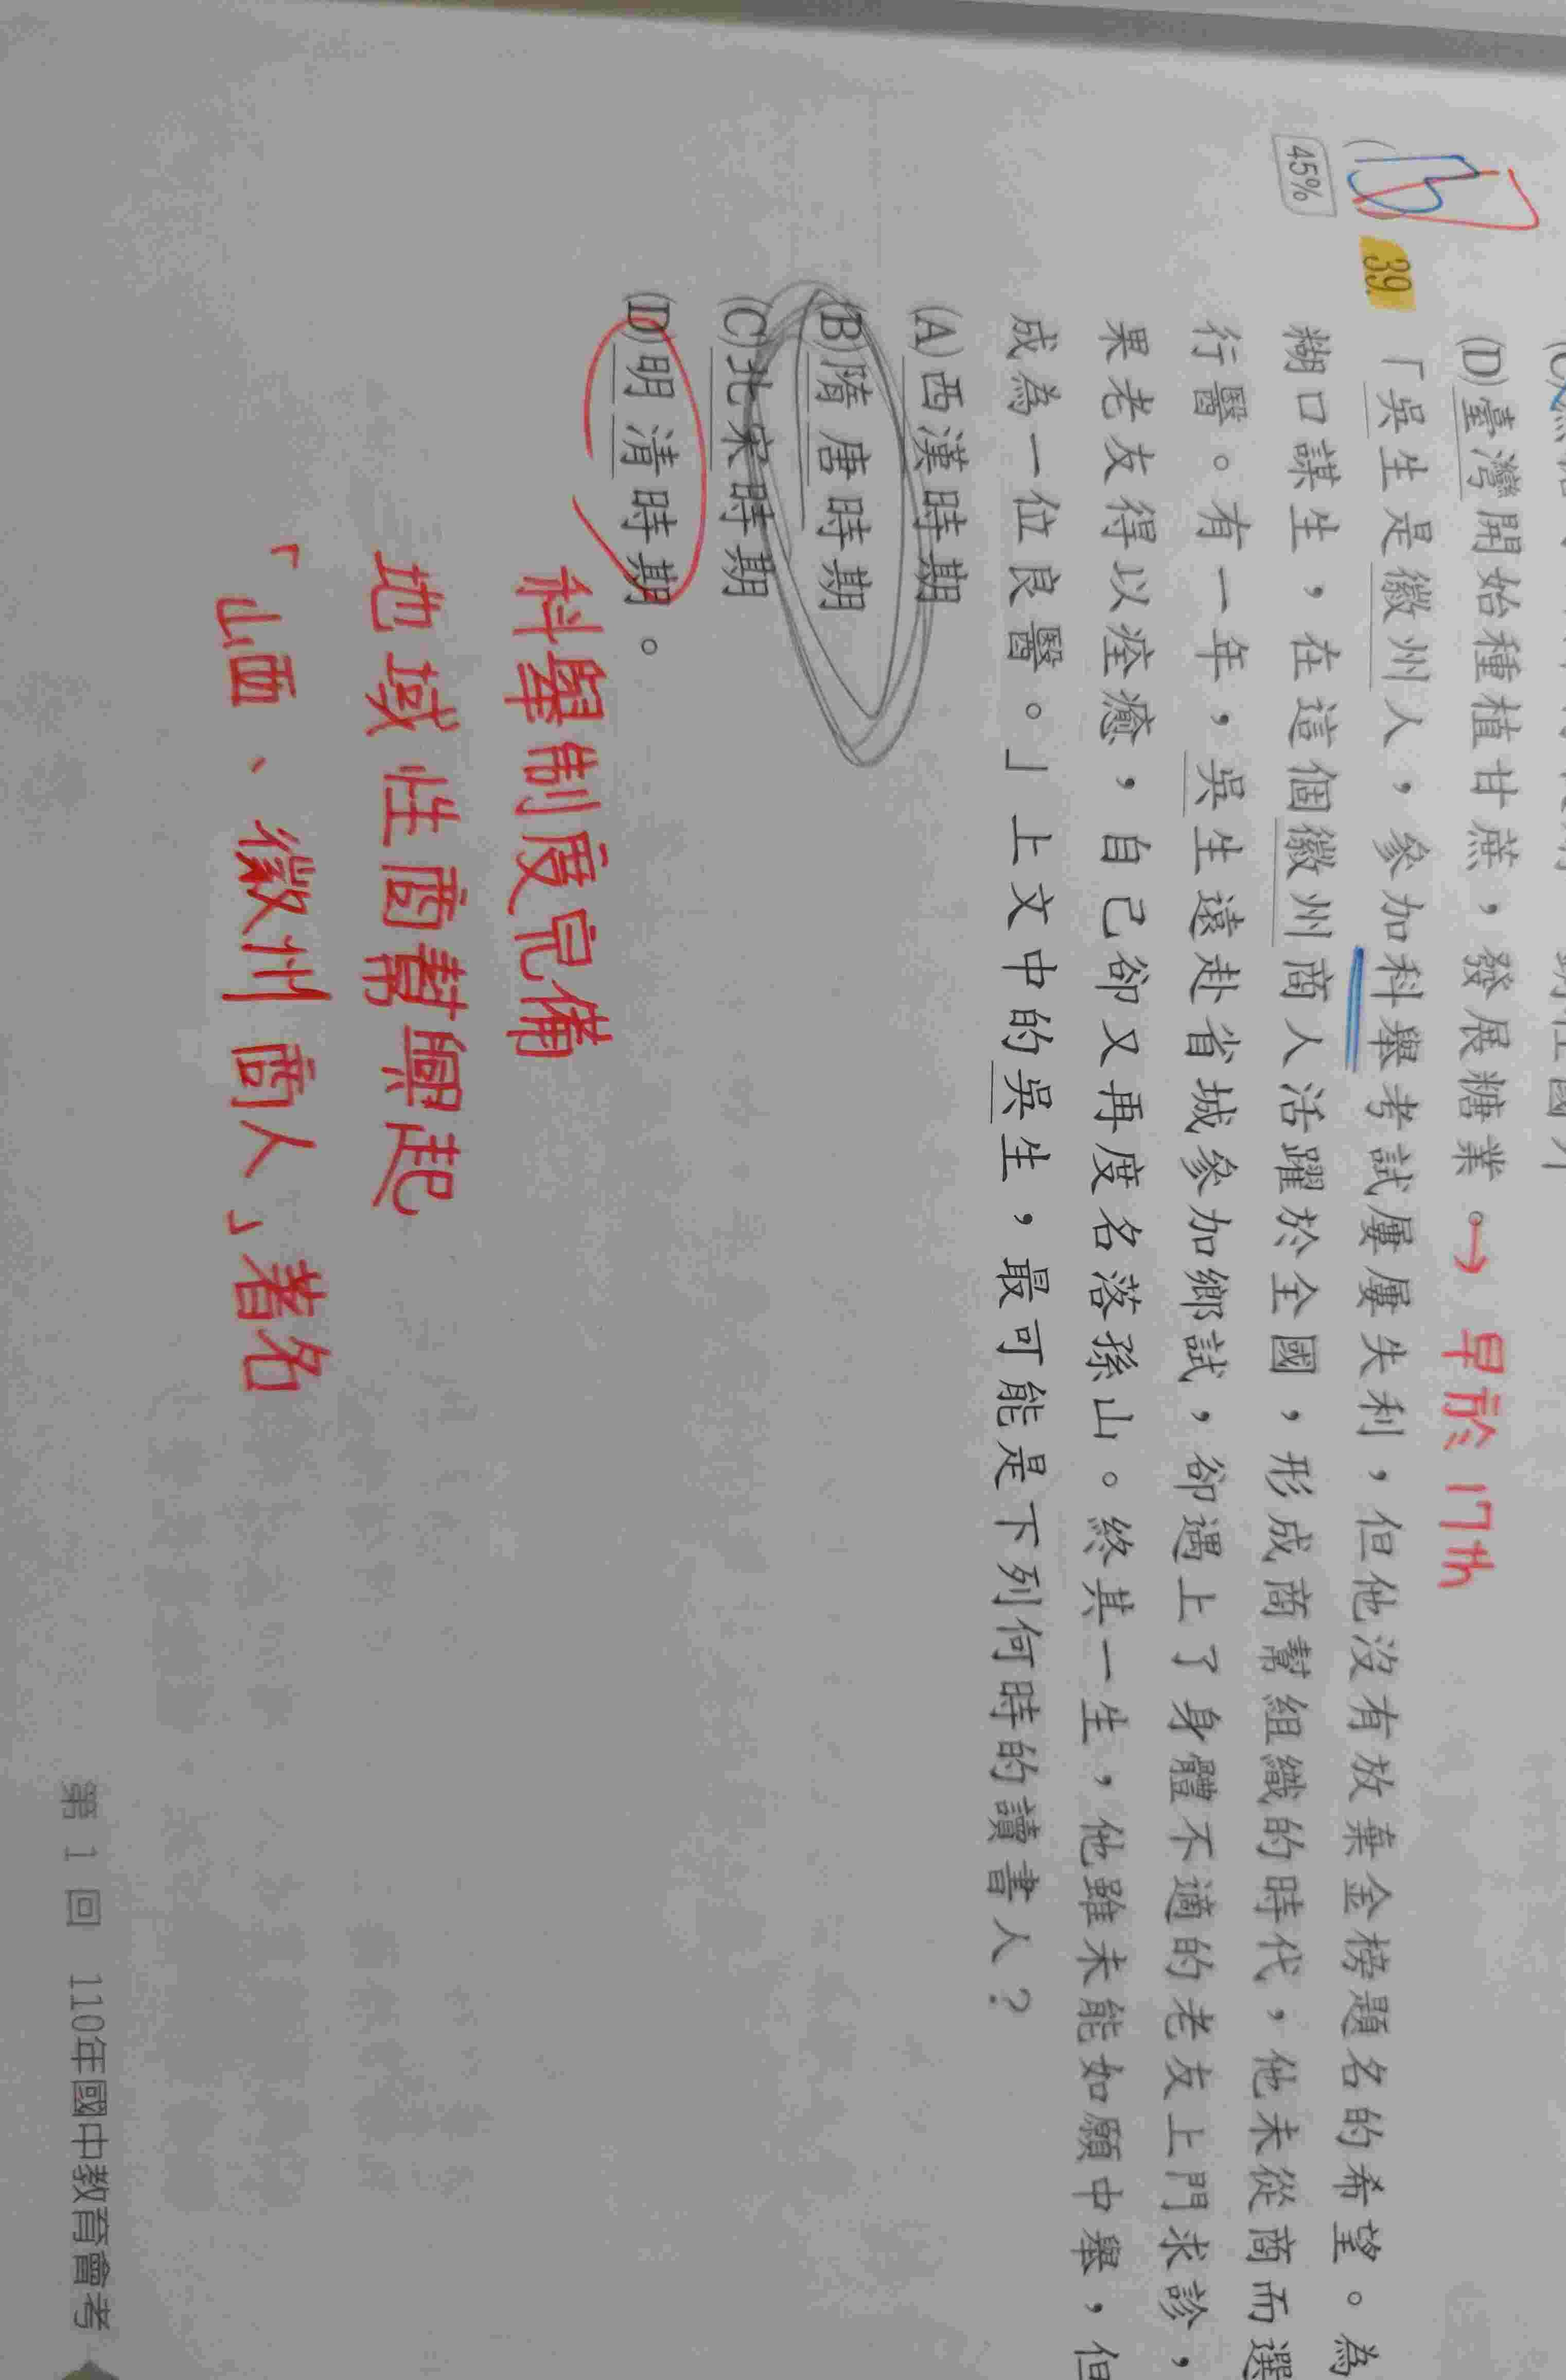 (D)臺灣開始種植甘蔗，發展糖業。→ 早於 17th
B
45%
39.
「吳生是徽州人，參加科舉考試屢屢失利，但他沒有放棄金榜題名的希望。為
糊口謀生，在這個徽州商人活躍於全國，形成商幫組織的時代，他未從商而選
行醫。有一年，吳生遠赴省城參加鄉試，卻遇上了身體不適的老友上門求診，
果老友得以痊癒，自己卻又再度名落孫山。終其一生，他雖未能如願中舉，但
成為一位良醫。」上文中的吳生，最可能是下列何時的讀書人？
(A)西漢時期
(B)隋唐時期
(C)北宋時期
(D)明清時期。
科舉制度完備
地域性商幫興起
「山西、徽州商人」著名
第 1 回 110年國中教育會考